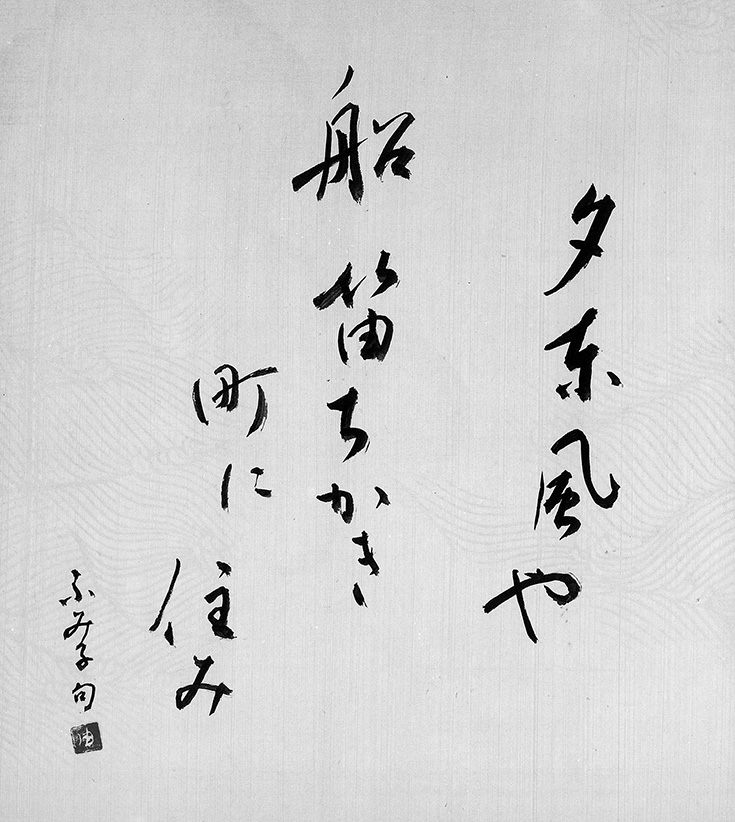 夕東風や
船笛ちかき
町に
住み
ふみ子句